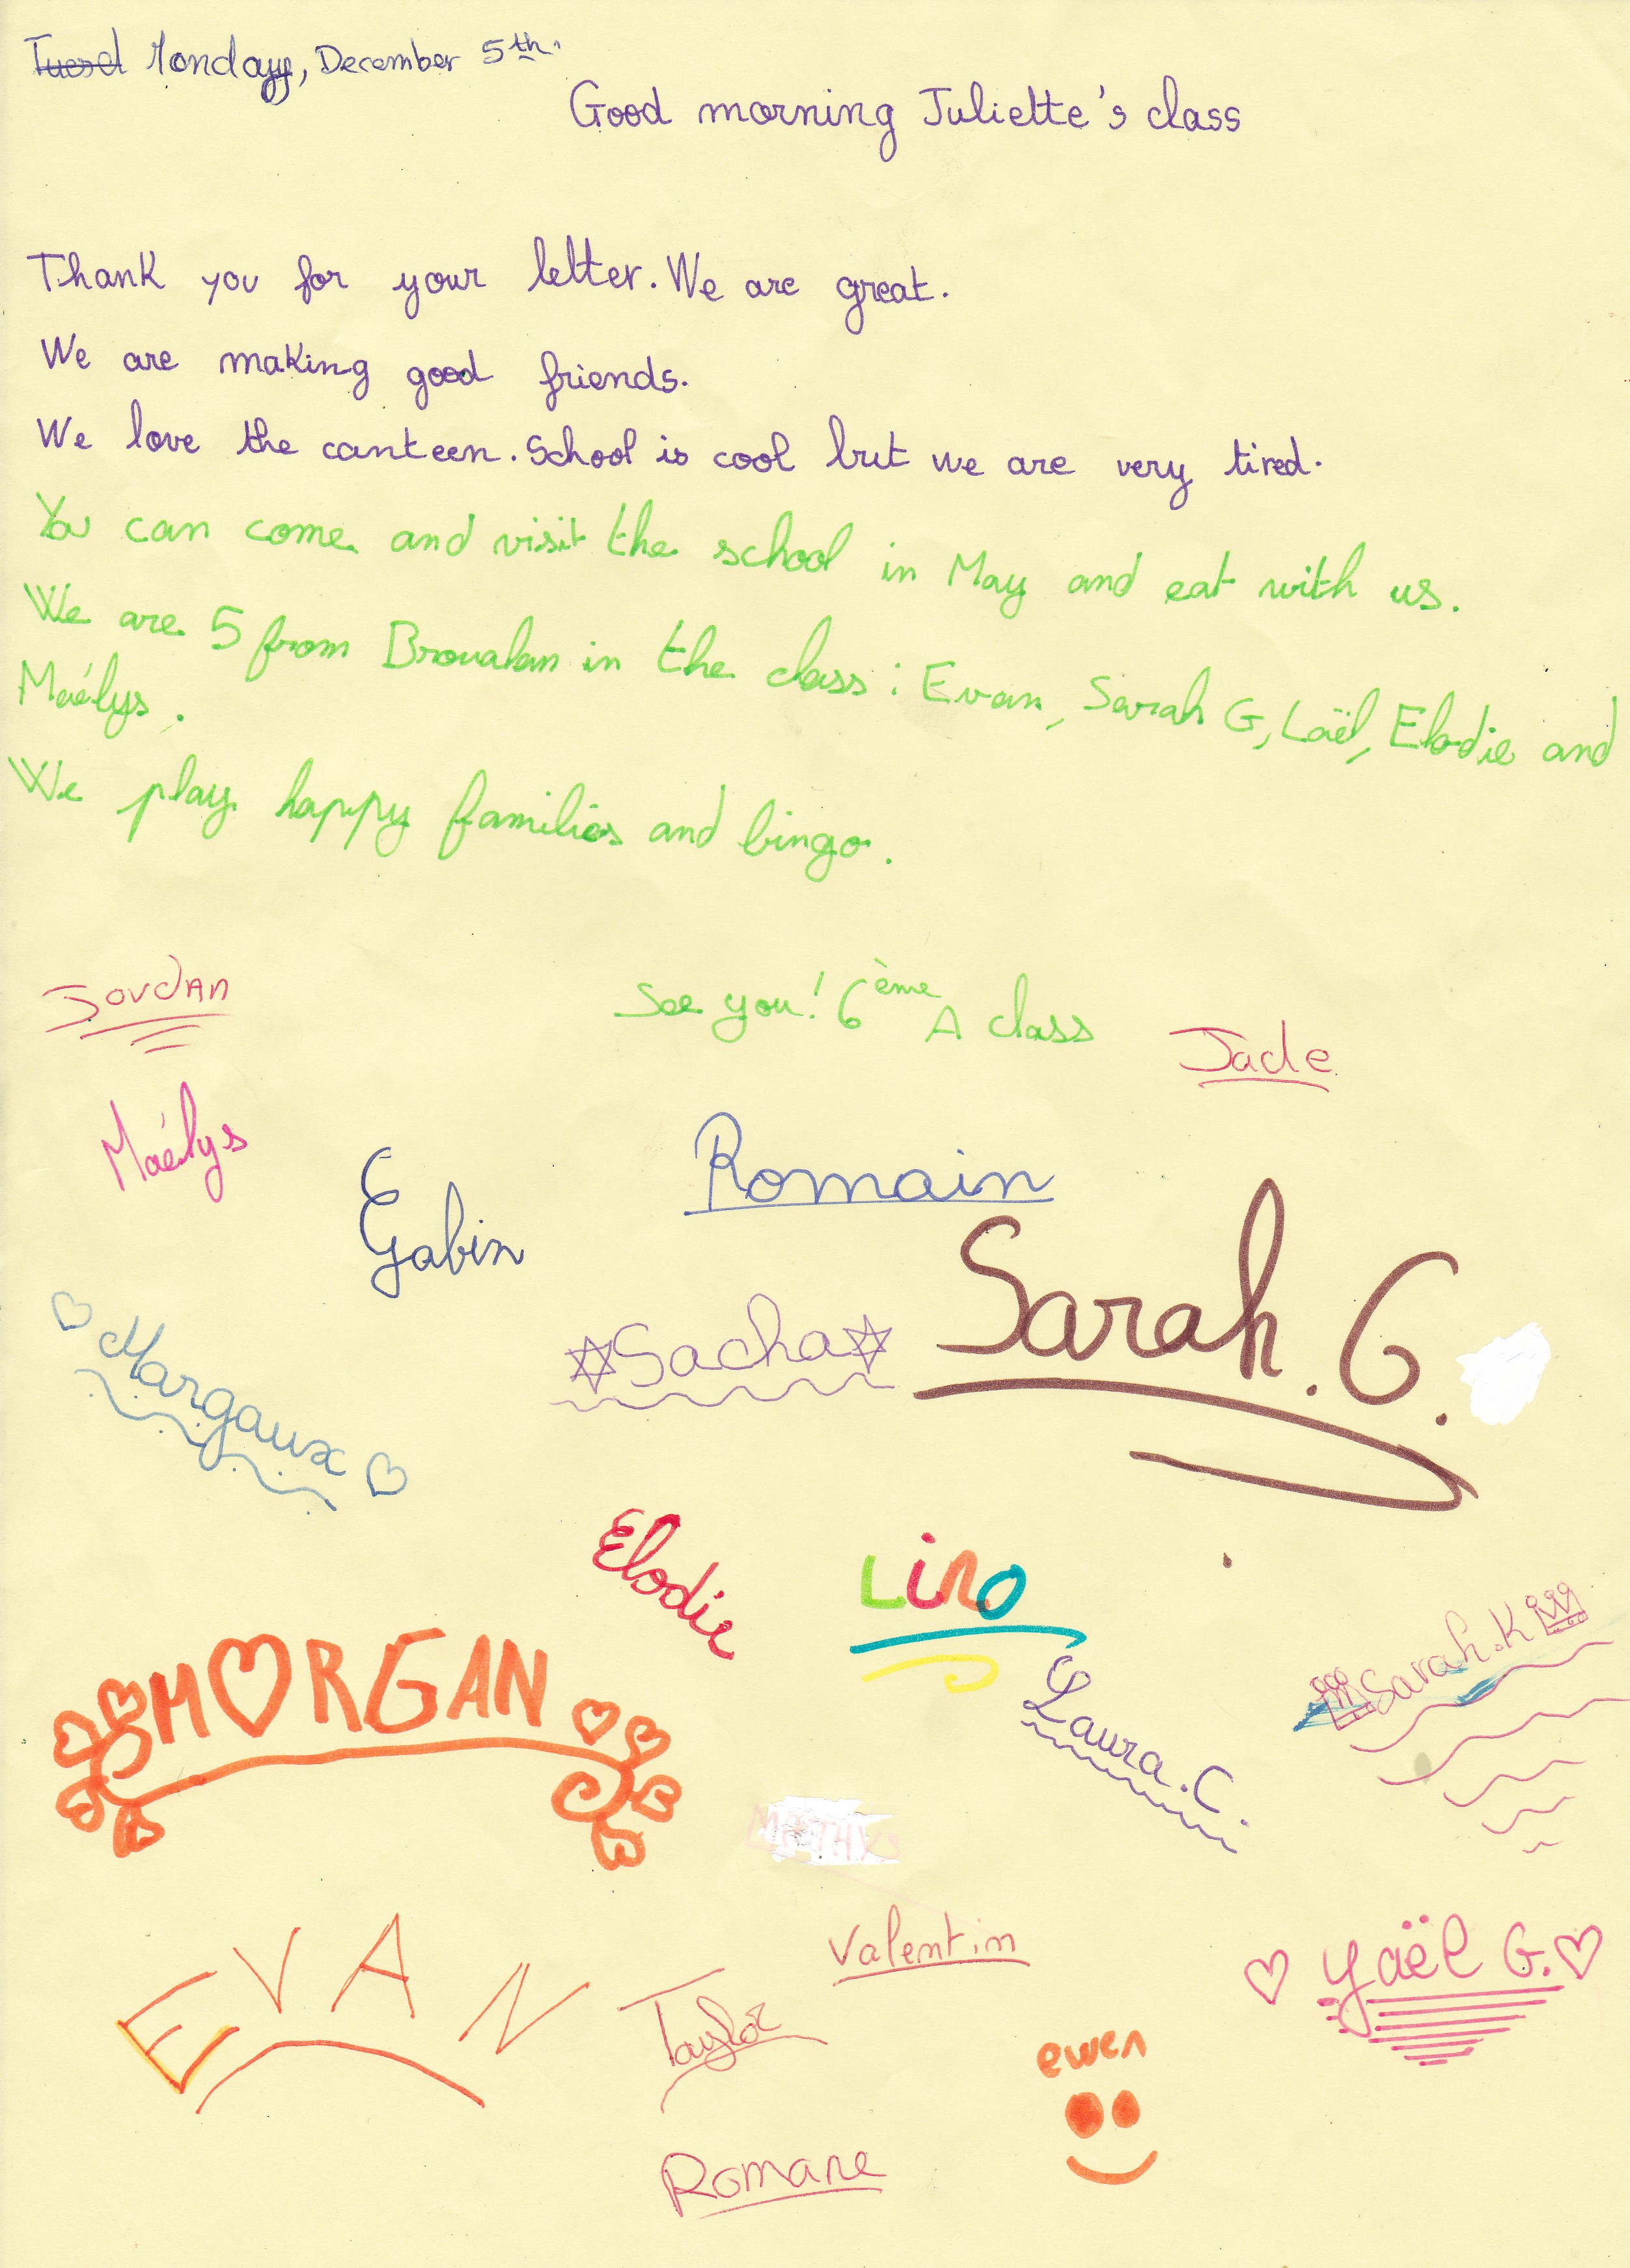 Tuesd Monday, December 5th.
Good morning Juliette's class
Thank you for your letter. We are great.
We are making good friends.
We love the canteen. School is cool but we are very tired.
You can come and visit the school in May and eat with us.
We are 5 from Broualan in the class: Evan, Sarah G, Laël, Elodie and
Maélys.
We play happy families and bingo.
See you! 6ème A class
Jordan
Jade
Maélys
Romain
Gabin
Sarah.G.
Sacha
Margaux
Elodie
Lino
Sarah.K
MORGAN
Laura.C.
MATHYS
Valentin
Yaël G.
EVAN
Taylor
ewen
Romane